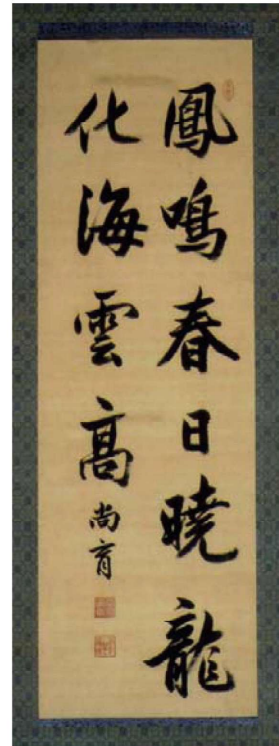 鳳鳴春日曉龍
化海雲高 尚育